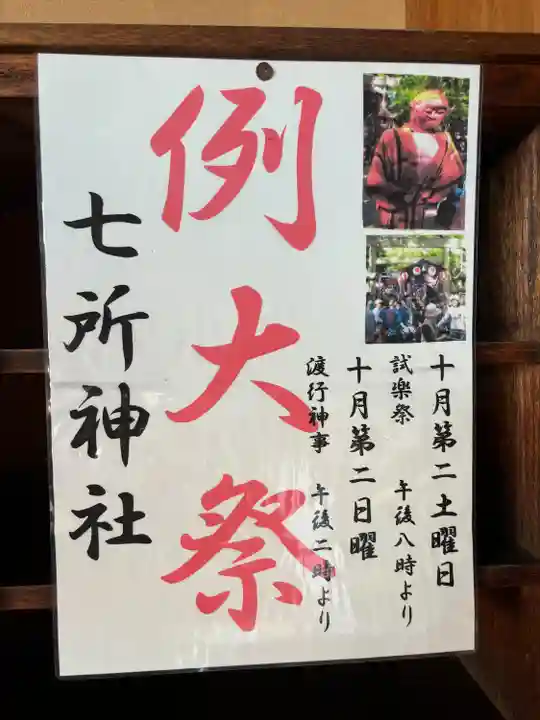 十月第二土曜日
試楽祭　午後八時より
十月第二日曜
渡行神事　午後二時より
例大祭
七所神社